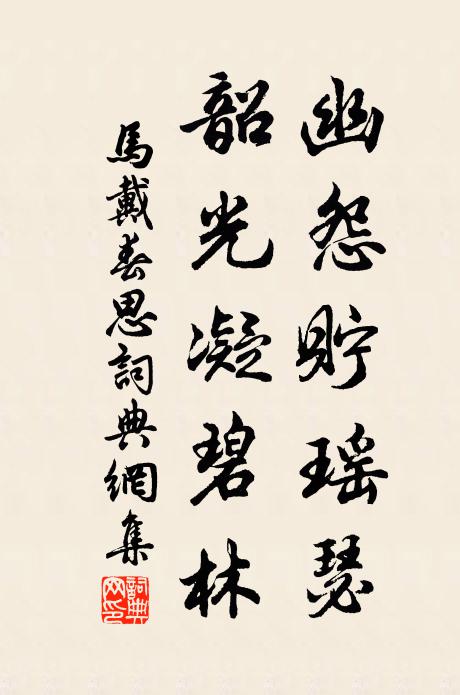 幽怨貯瑤瑟
韶光凝碧林
馬戴春思詞典網集
詞典
网印